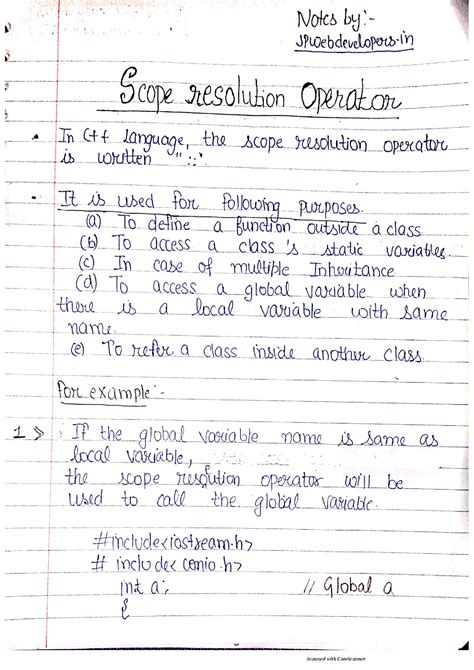 Notes by:-
JPWebdevelopers.in
Scope resolution Operator
• In C++ language, the scope resolution operator
is written "::"
• It is used for following purposes.
(a) To define a function outside a class
(b) To access a class's static variables.
(c) In case of multiple Inheritance
(d) To access a global variable when
there is a local variable with same
name.
(e) To refer a class inside another class.
For example:-
1 > If the global variable name is same as
local variable,
the scope resolution operator will be
used to call the global variable.
#include<iostream.h>
# include< conio.h>
int a; // Global a
{
Scanned with CamScanner